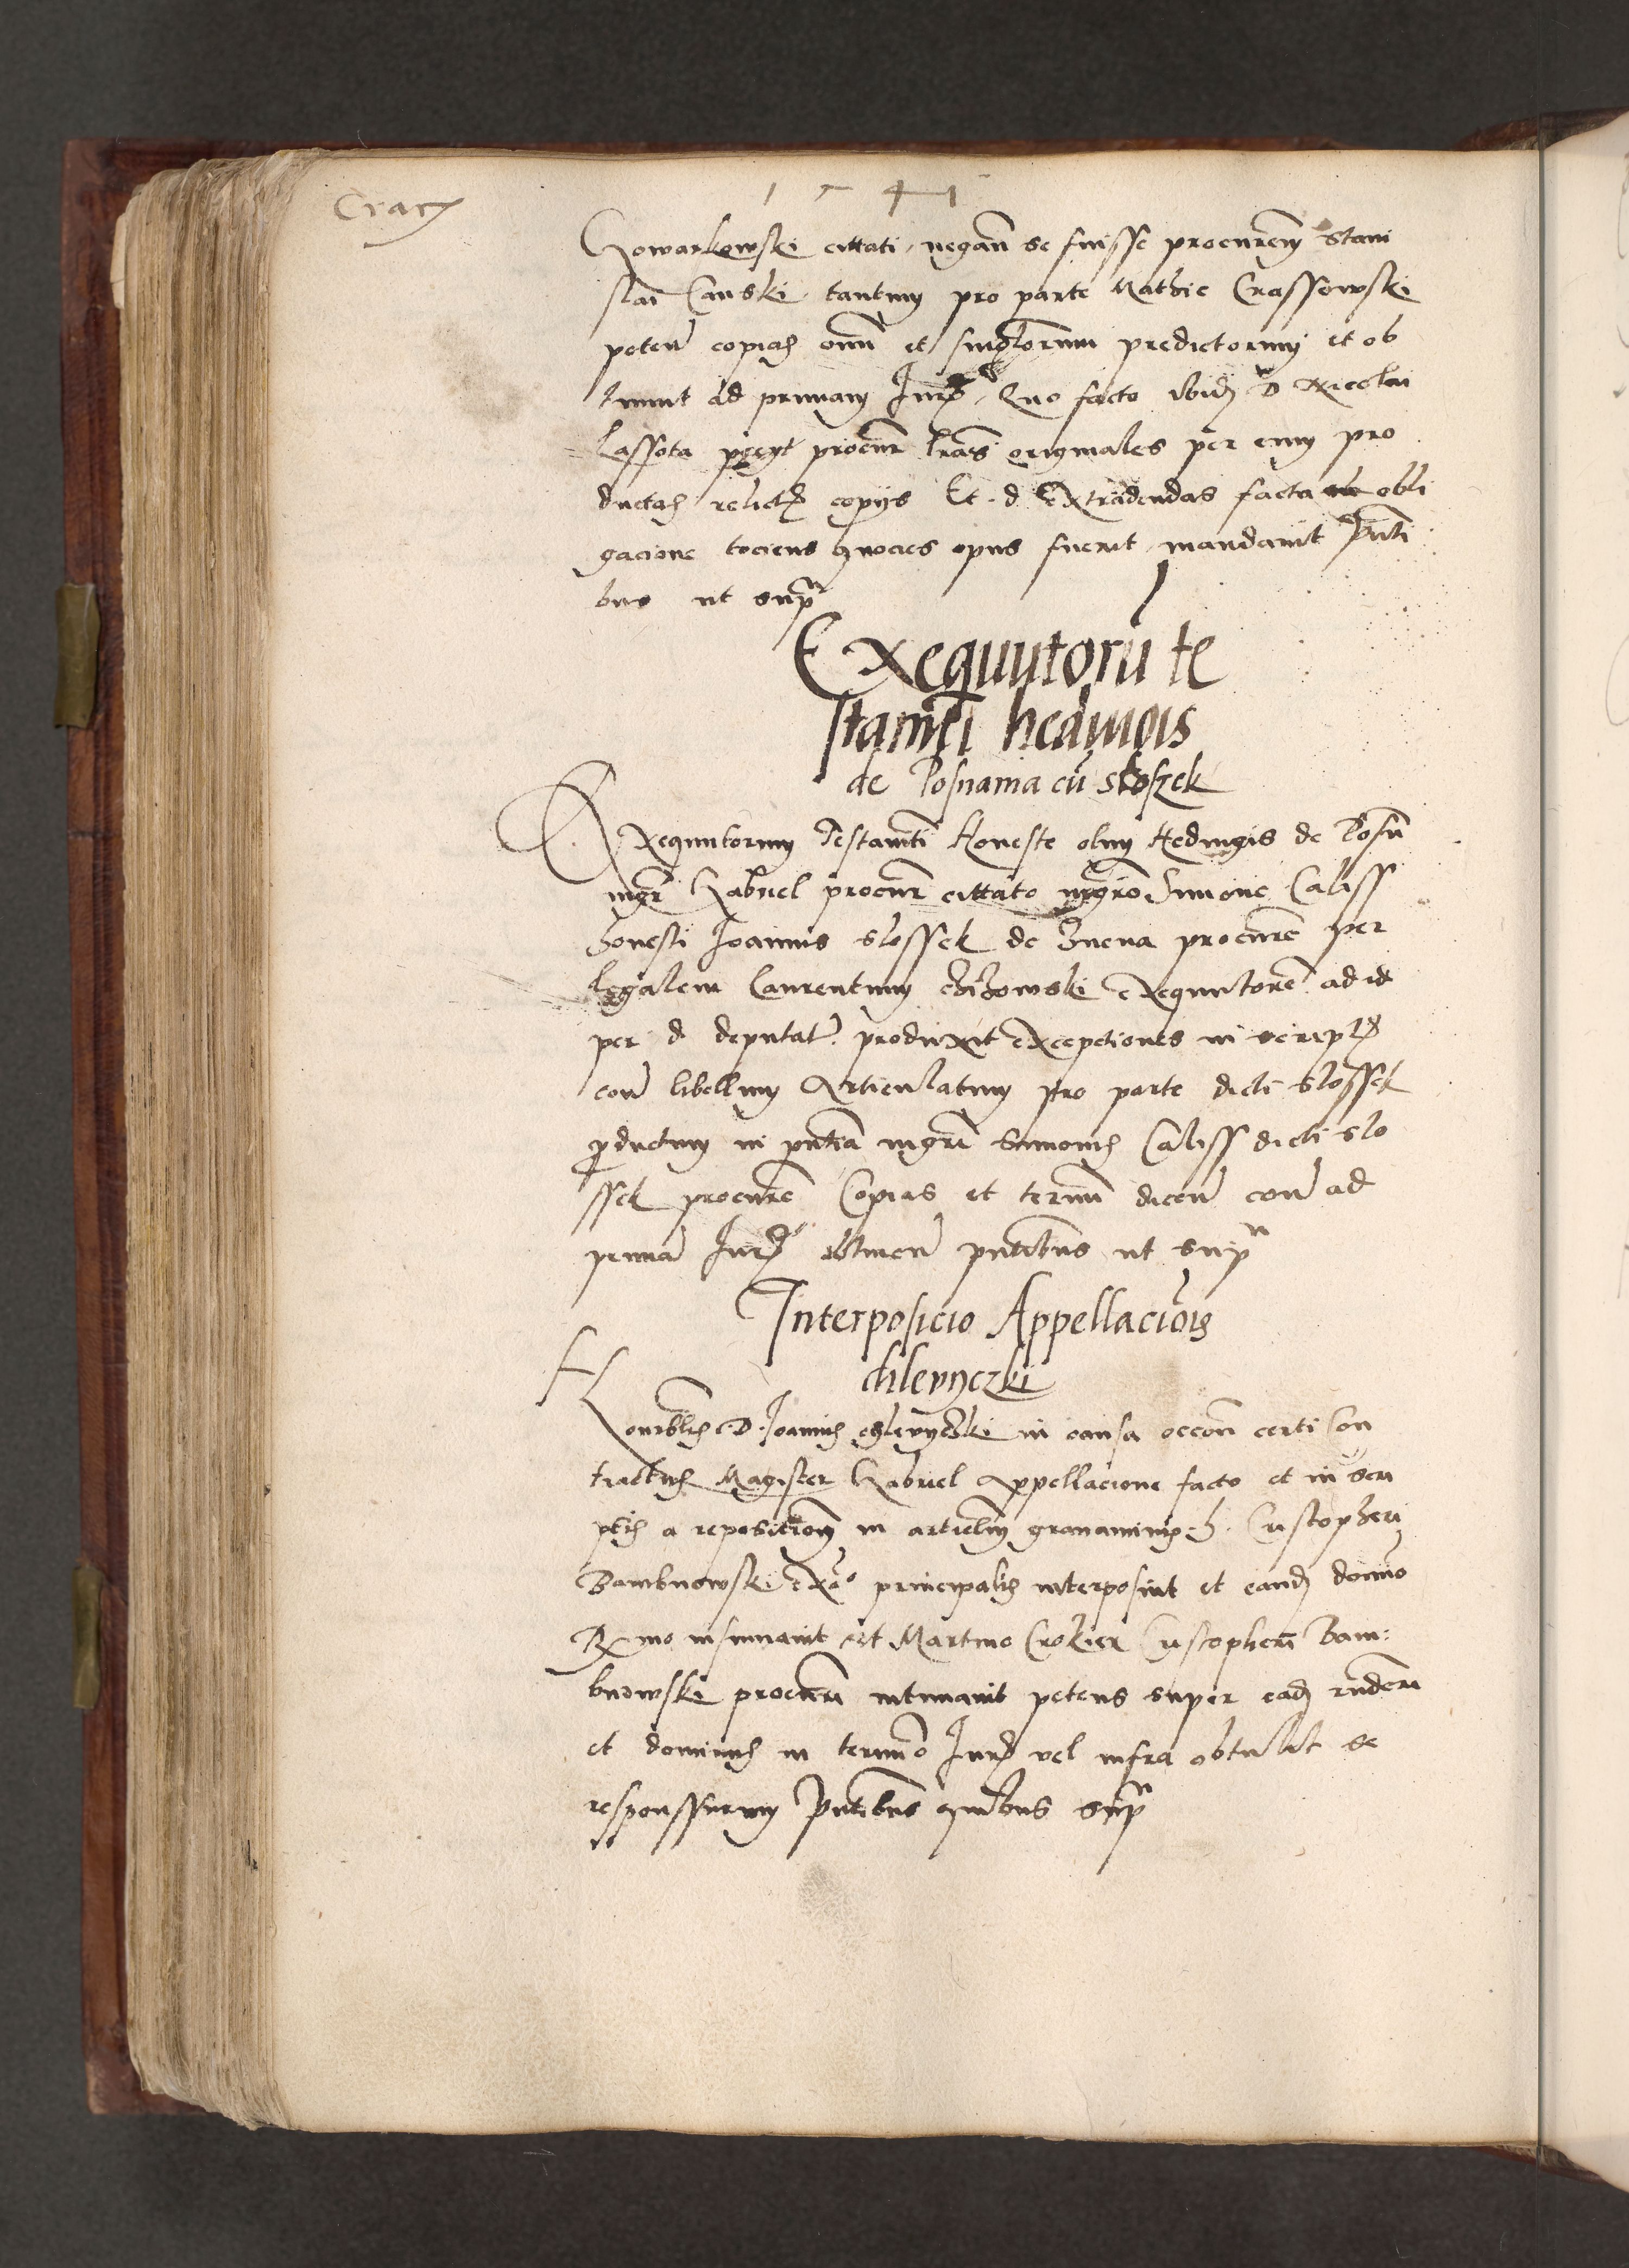 Cracz
1541
Gowarkowski cittati, negan̄ se fuisse procurem̄ Stani
slai Canski tantum pro parte Mathie Crassowski
peten̄ copias om̄ et singlorum predictorum et ob
tinuit ad primam Jurd. Quo facto ibid D Nicolai
Lassota procur lras originales per eum pro
ductas relictis copijs Et d Extradendas facta obli
gacione tociens quocies opus fuerit, mandavit pn̄ti
bus ut sup
Exequutorū te
stamēti hedwigis
de Posnania cū sloszek
Exequutorum Testamti Honeste olim Hedwigis de Posn̄
mgr Gabriel procur cittato mgro Simone Caliss
honesti Joannis slossek de Znena procure per
legalem Laurentium exequutore ad id
per d deputat produxit exceptiones in
con̄ libellum Articulatum pro parte dicti slossek
productum in pn̄tia mgri Simonis Caliss dicti slo
ssek procure Copias et termi dicen̄ con̄ ad
prima Jurd obtinen̄ pn̄tibus ut sup
Interposicio Appellaciōis
chlevyczki
Honrablis D. Joannis chlevyczki in causa occon̄ certi Con
tractus Magister Gabriel Appellacione facto et in scri
ptis a repositionem in articlm̄ gravaminis h. Cristopheri
Bambnowski principalis interposuit et eand domino
Rmo insinuavit et Martino Crokier Cristopheri Bam:
bnowski procuri intimavit petens super ead rn̄deri
et dominus in termino Jurd vel infra obtulit se
responssurum pn̄tibus quibus sup